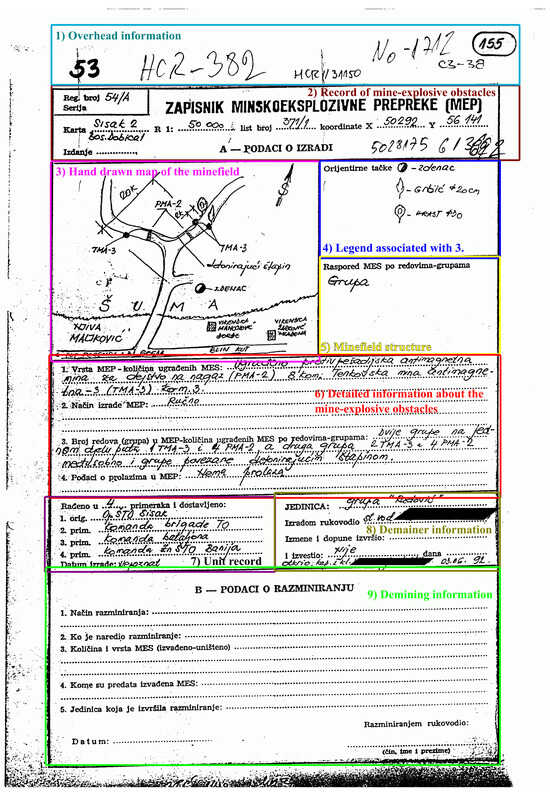 1) Overhead information
155
53 HCR-382 No-1712
HCR/31150 C3-38
2) Record of mine-explosive obstacles
Reg. broj 54/A
Serija
ZAPISNIK MINSKOEKSPLOZIVNE PREPREKE (MEP)
Karta Sisak 2 R 1: 50 000 list broj 371/1 koordinate X 50292 Y 56141
Izdanje
A — PODACI O IZRADI
5028175
3) Hand drawn map of the minefield
20K
PMA-2
TMA-3
TMA-3
detonirajući štapin
ZDENAC
ŠUMA
NJIVA
MAČKOVIĆ
Orijentirne tačke - zdenac
- Grbić
- HRAST
4) Legend associated with 3.
Raspored MES po redovima-grupama
Grupa
5) Minefield structure
1. Vrsta MEP-količina ugrađenih MES:
mina za dejstvo na nagaz (PMA-2) 8 kom. Tenkovska mina antimagne-
tna-3 (TMA-3) 2 kom.
2. Način izrade MEP: Ručno
6) Detailed information about the
mine-explosive obstacles
3. Broj redova (grupa) u MEP-količina ugrađenih MES po redovima-grupama: Dvije grupe na jed-
nom djelu puta 1 TMA-3 i 4 PMA-2 a druga grupa 2 TMA-3 i 4 PMA-2
međusobno i grupe povezane detonirajućim štapinom.
4. Podaci o prolazima u MEP: Nema prolaza
Rađeno u 4 primeraka i dostavljeno:
1. orig. OpŠTO Sisak
2. prim. Komanda brigade TO
3. prim. Komanda bataljona
4. prim. Komanda ZnŠTO Banija
Datum izrade: Nepoznat
7) Unit record
JEDINICA: grupa
Izradom rukovodio
8) Demainer information
Izmene i dopune izvršio:
I izvestio: Nije dana
03.06.92.
9) Demining information
B — PODACI O RAZMINIRANJU
1. Način razminiranja:
2. Ko je naredio razminiranje:
3. Količina i vrsta MES (izvađeno-uništeno)
4. Kome su predata izvađena MES:
5. Jedinica koja je izvršila razminiranje:
Razminiranjem rukovodio:
Datum:
(čin, ime i prezime)